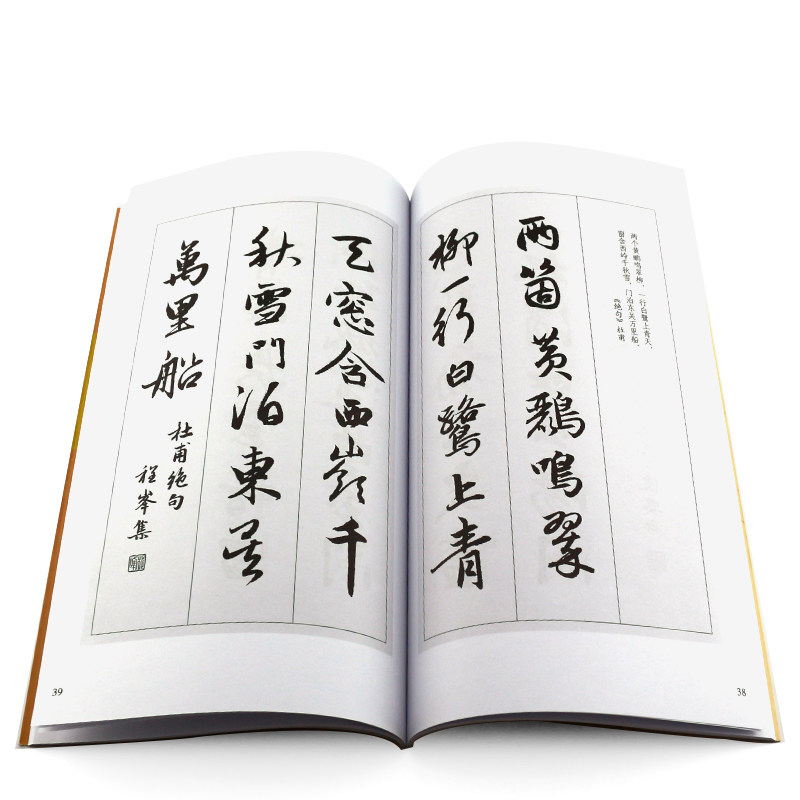 两个黄鹂鸣翠柳，一行白鹭上青天。
窗含西岭千秋雪，门泊东吴万里船。
《绝句》杜甫
兩箇黄鸝鳴翠
柳一行白鷺上青
天窓含西嶺千
秋雪門泊東吴
萬里船
杜甫絶句
程峯集
38
39